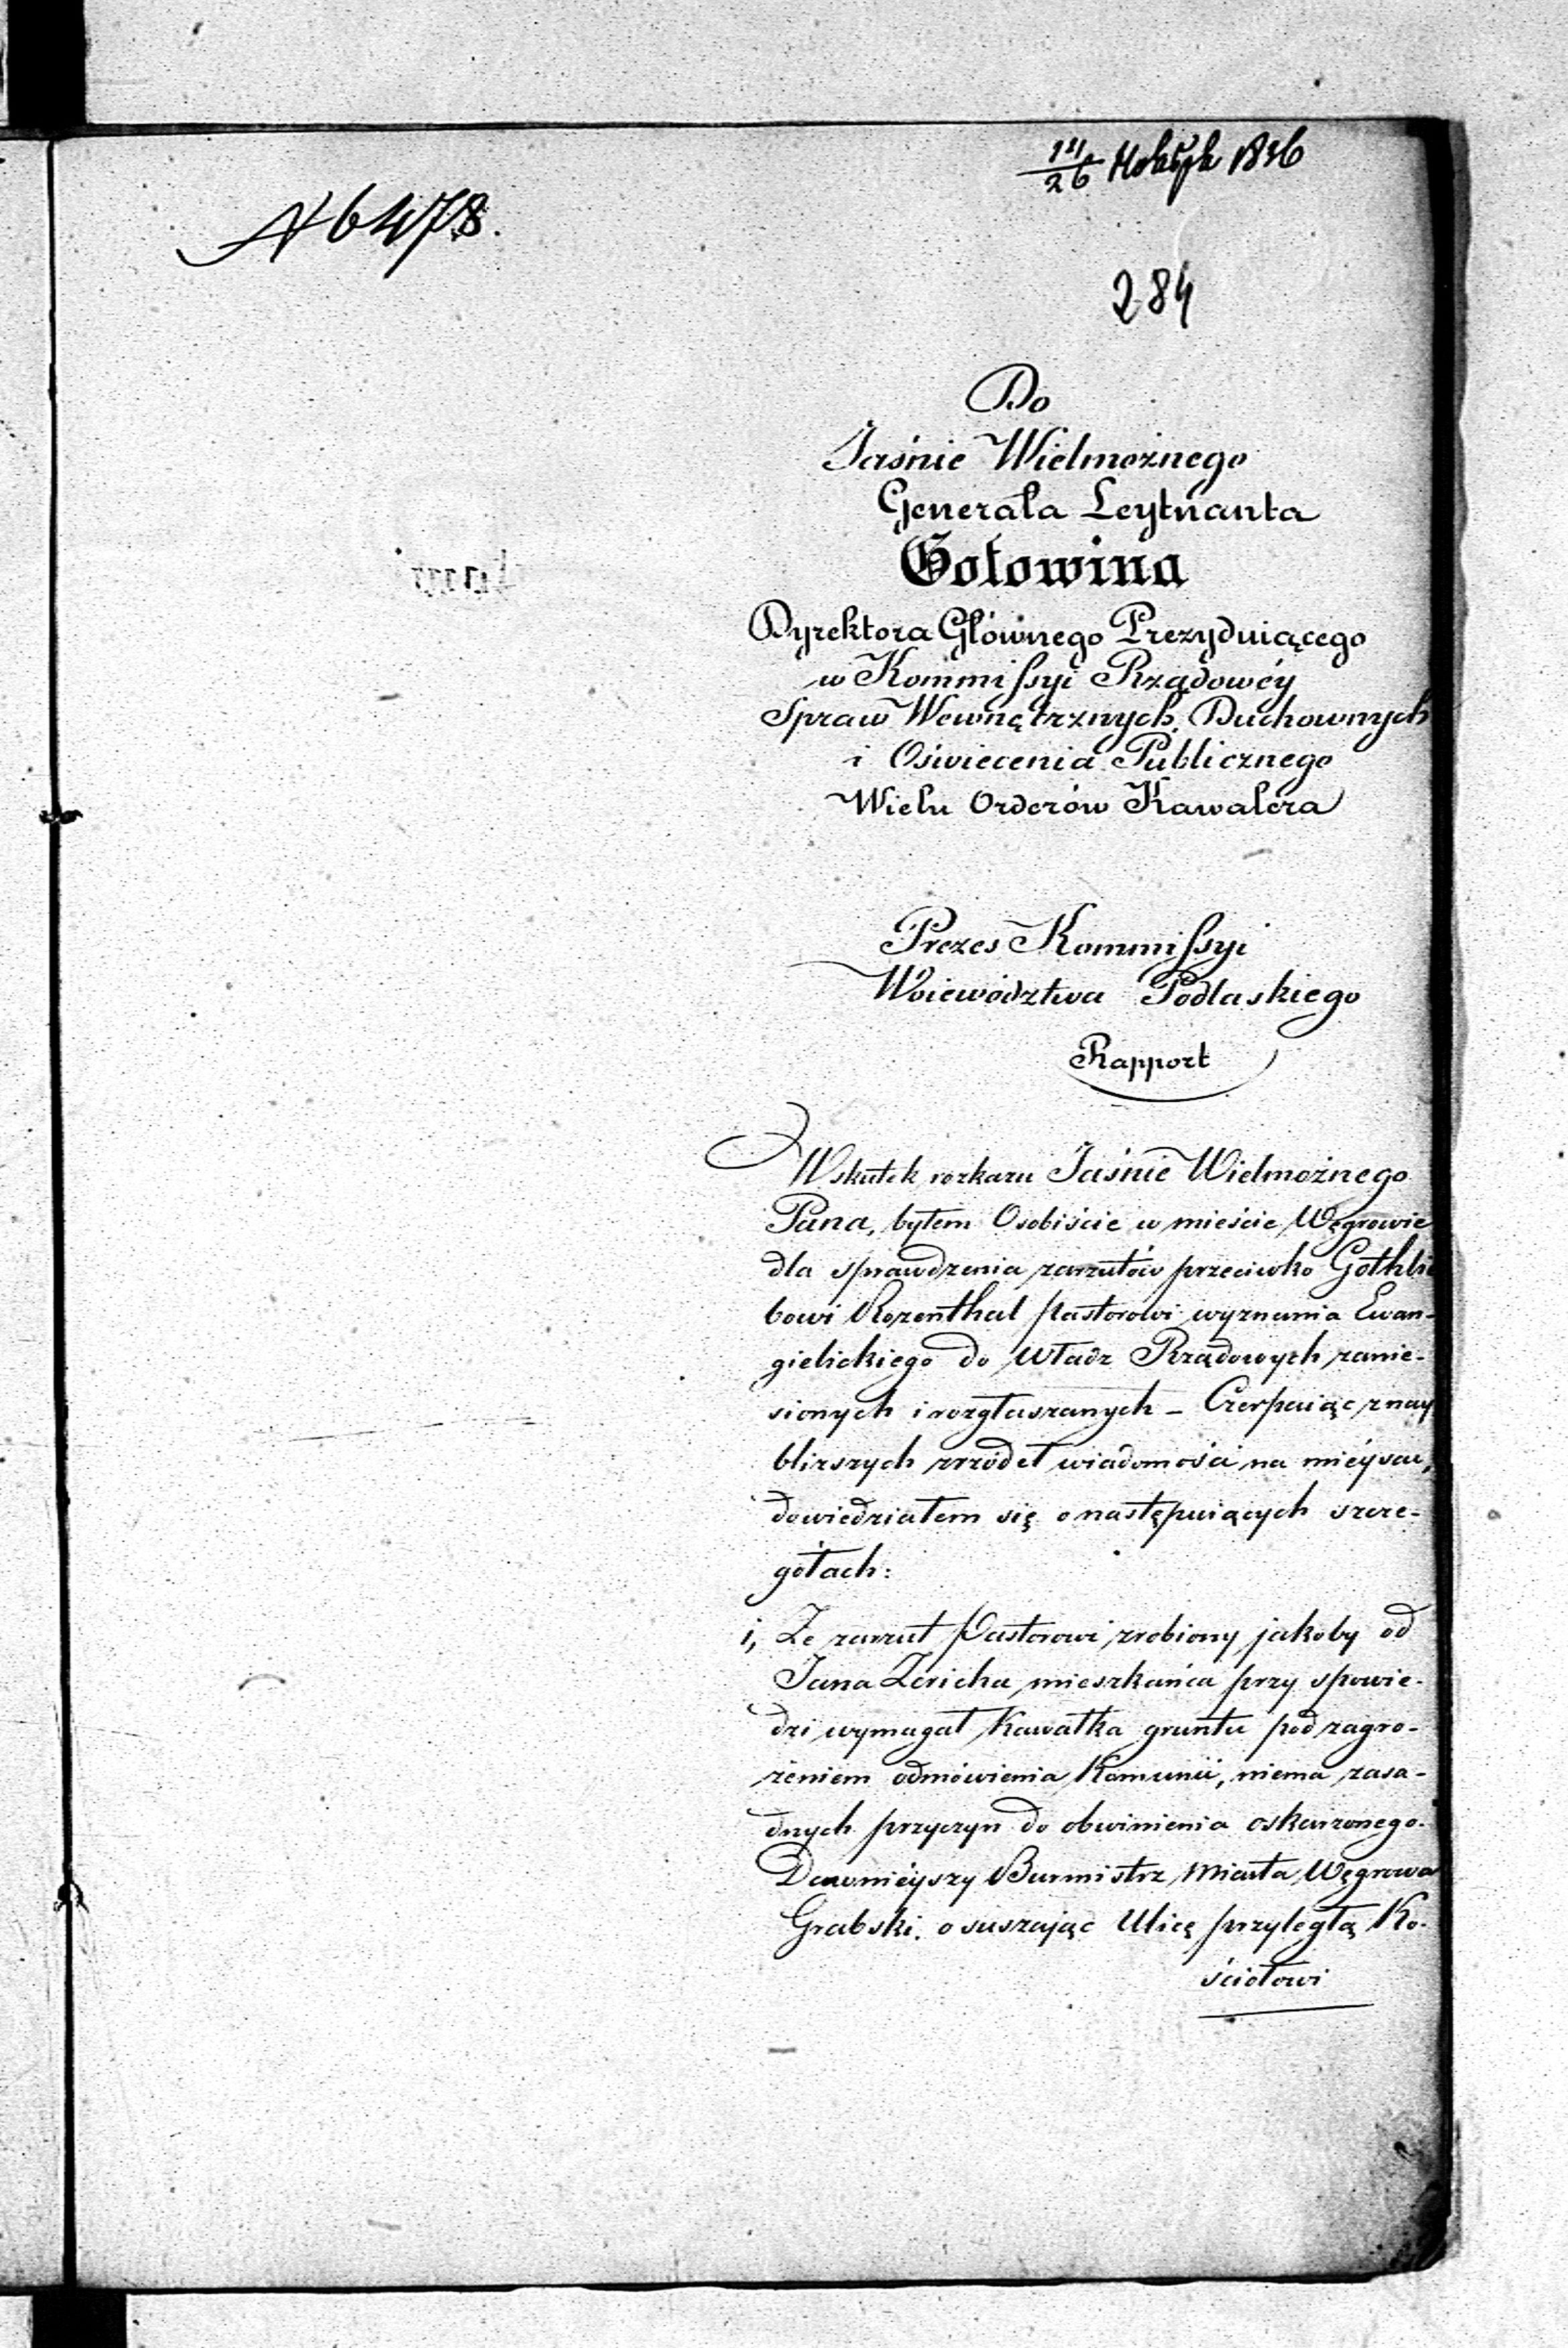 14/26 Ноября 1836
N 6478.
284
Do
Jaśnie Wielmożnego
Generała Leytnanta
Gołowina
Dyrektora Głównego Prezyduiącego
w Kommissyi Rządowéy
Spraw Wewnętrznych, Duchownych
i Oświecenia Publicznego
Wielu Orderów Kawalera
Prezes Kommissyi
Woiewództwa Podlaskiego
Rapport
Wskutek rozkazu Jaśnie Wielmożnego
Pana, byłem Osobiście w mieście Węgrowie
dla sprawdzenia zarzutów przeciwko Gothlie
bowi Rozenthal Pastorowi wyznania Ewan-
gielickiego do Władz Rządowych zanie-
sionych i rozgłaszanych – Czerpaiąc z nay
bliższych zrzódeł wiadomości na mieyscu,
dowiedziałem się o następuiących szcze-
gółach:
1, Że zarzut Pastorowi zrobiony jakoby od
Jana Zericha mieszkańca przy spowie-
dzi wymagał Kawałka gruntu pod zagro-
żeniem odmówienia Komunii, niema zasa-
dnych przyczyn do obwinienia oskarżonego.
Dawnieyszy Burmistrz Miasta Węgrowa
Grabski, osuszając Ulicę przyległą Ko-
ściołowi